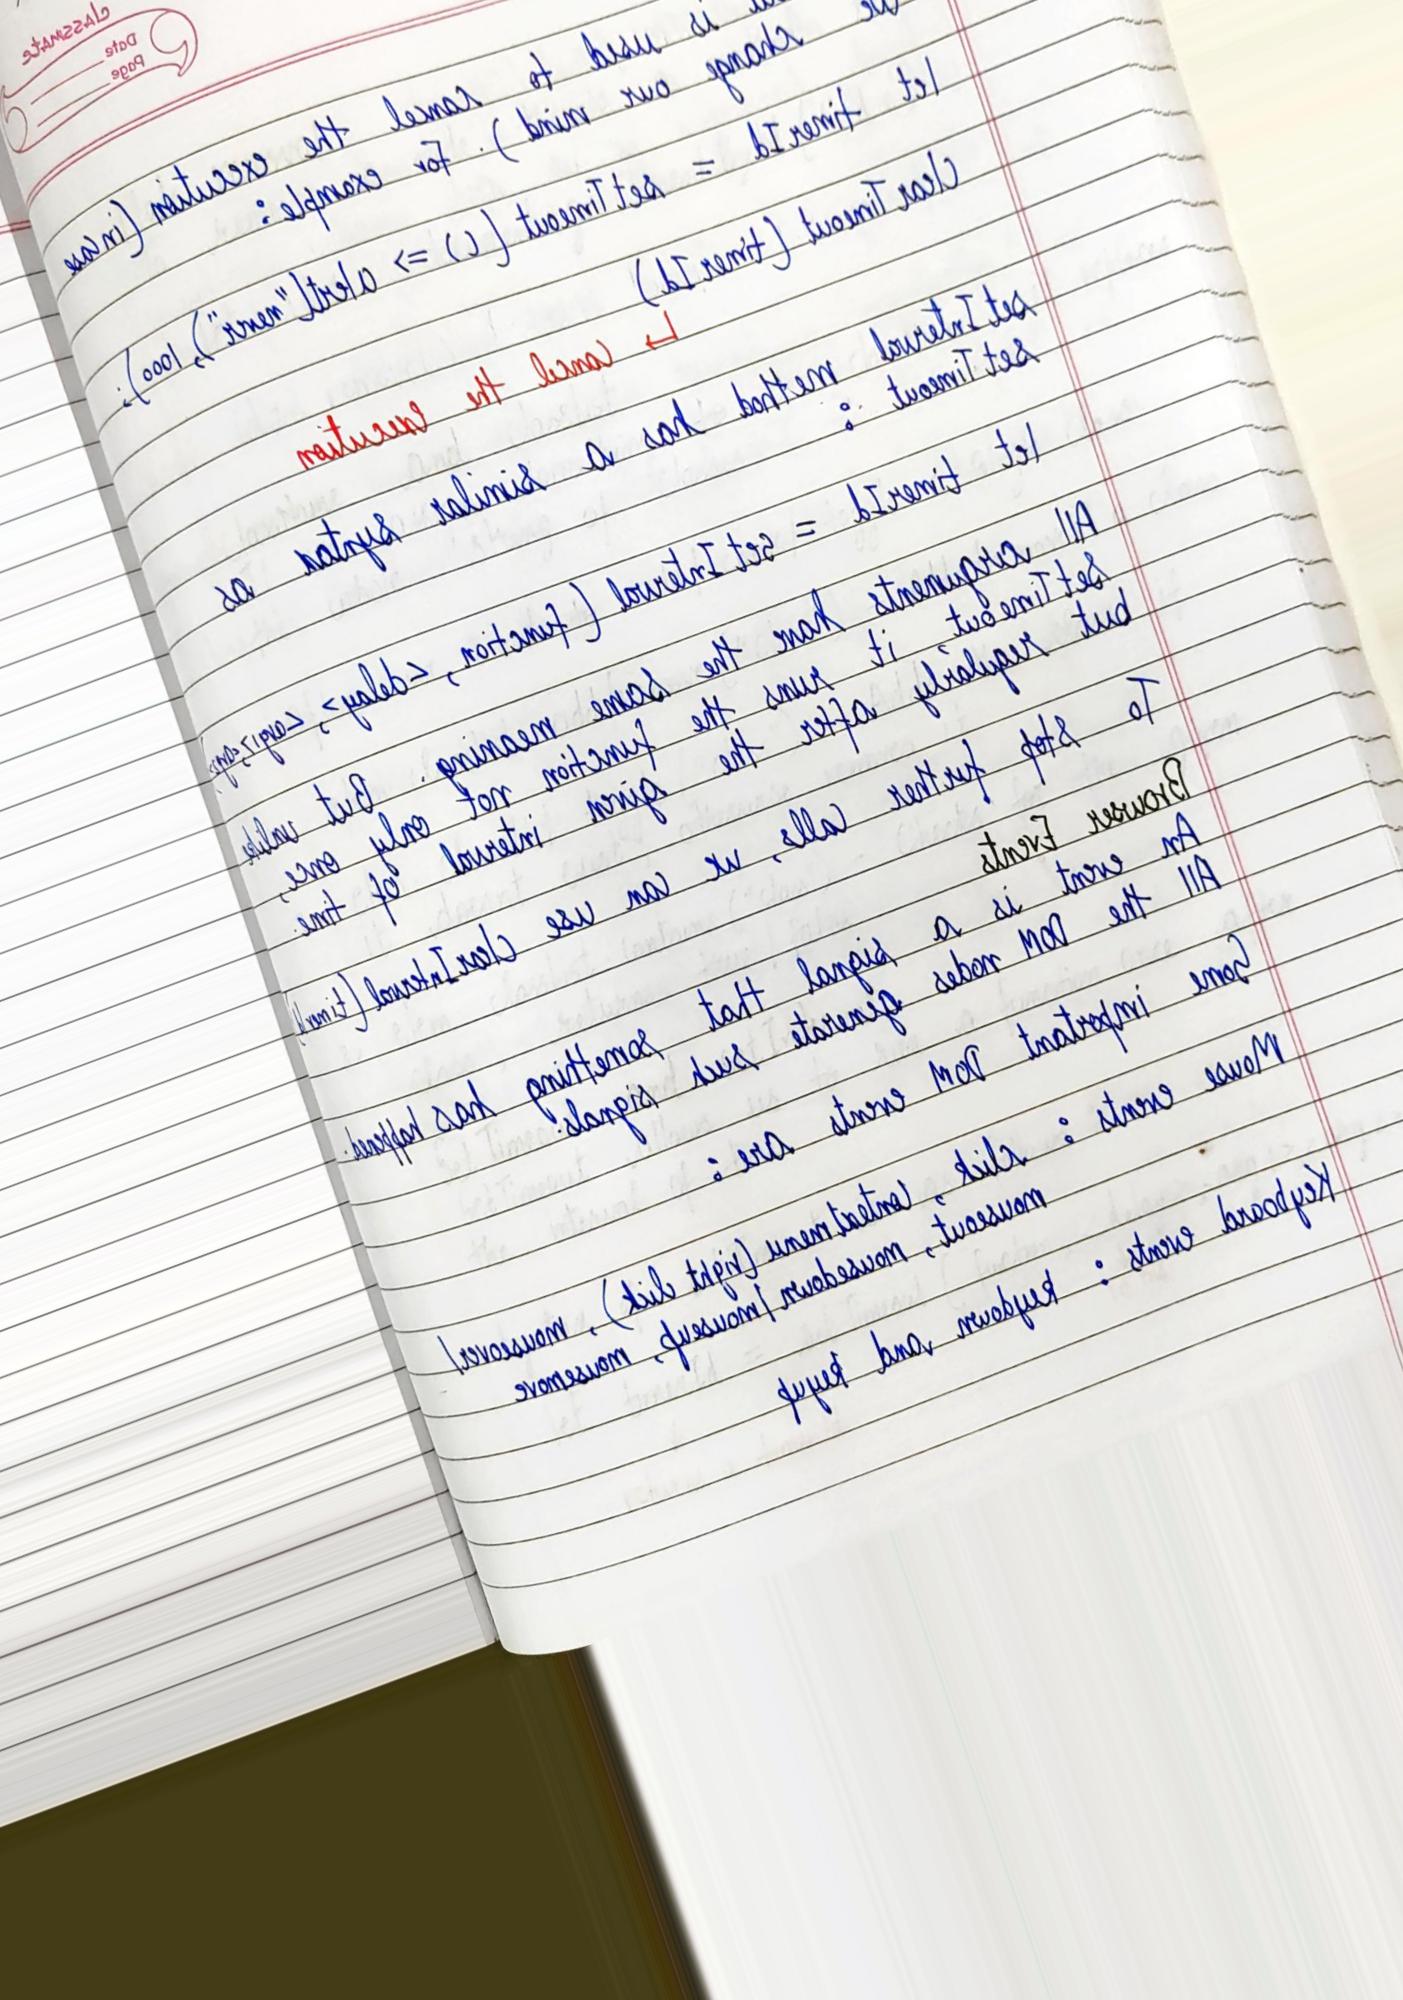 classmate
Date
Page
is used to cancel the execution (in case
we change our mind). For example:
let timerId = setTimeout (() => alert("never"), 1000);
clearTimeout (timerId)
↳ cancel the execution
setInterval method has a similar syntax as
setTimeout :
let timerId = setInterval (function, <delay>, <arg1>,
All arguments have the same meaning. But unlike
setTimeout, it runs the function not only once,
but regularly after the given interval of time.
To stop further calls, we can use clearInterval (timerId)
Browser Events
An event is a signal that something has happened.
All the DOM nodes generate such signals.
Some important DOM events are :
Mouse events : click, contextmenu (right click), mouseover/
mouseout, mousedown/mouseup, mousemove
Keyboard events : keydown and keyup